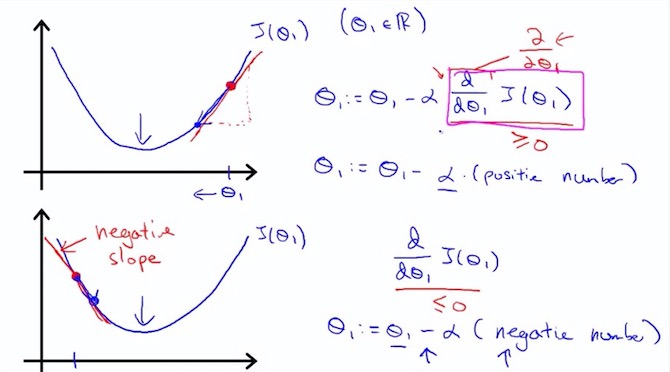 J(θ₁) (θ₁ ∈ ℝ)
∂/∂θ₁ ←
θ₁ := θ₁ - α d/dθ₁ J(θ₁)
≥ 0
θ₁ := θ₁ - α · (positie number)
← θ₁
negative
slope
J(θ₁)
d/dθ₁ J(θ₁)
≤ 0
θ₁ := θ₁ - α (negatie number)